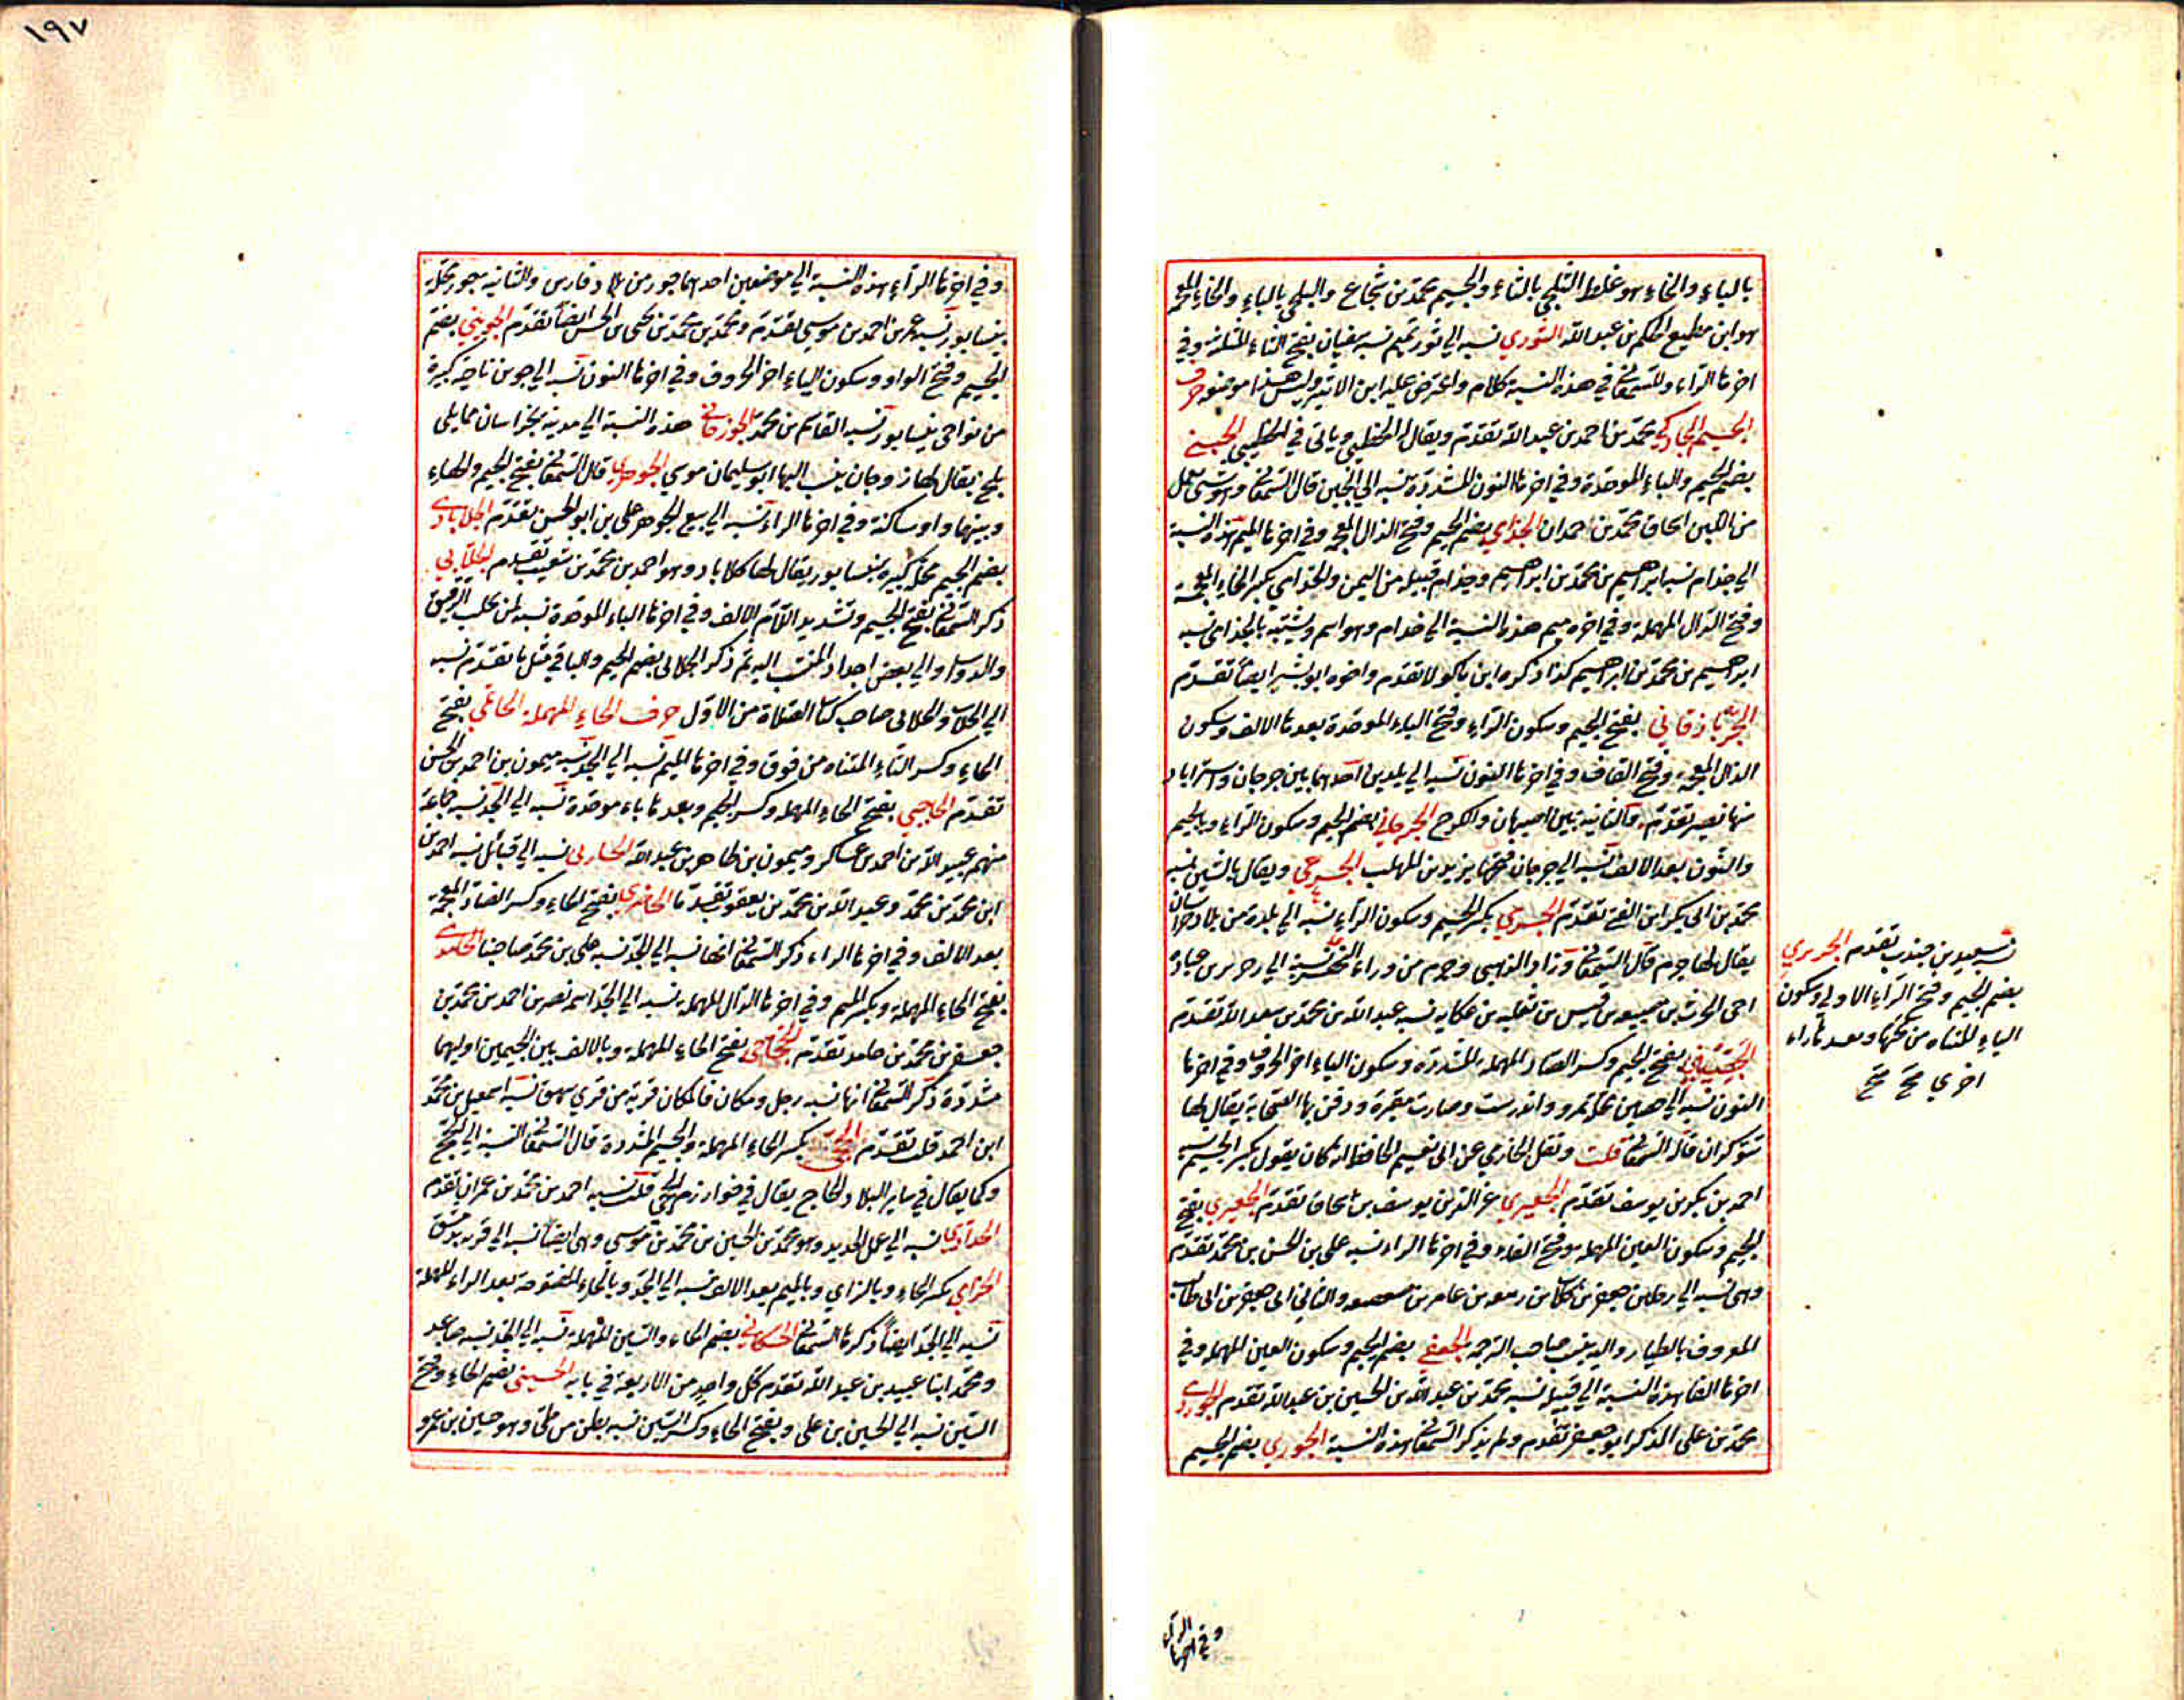 بالباء والخاء هو غلط الثلجي بالثاء والجيم محمد بن شجاع والبلخي بالباء والخاء المعجمة
هو ابن مطيع الحكم بن عبد الله الثوري نسبه الي ثور تميم نسبه سفيان بفتح الثاء المثلثة وفي
اخرها الراء وللسمعاني في هذه النسبة كلام واعترض عليه ابن الاثير وليس هذا موضعه حرف
الجيم محمد بن احمد بن عبد الله تقدم ويقال له الخطيبي وياتي في الخطيبي الجبني
بضم الجيم والباء الموحدة وفي اخرها النون المشددة نسبه الي الجبن قال السمعاني وهو شي يعمل
من اللبن اسحاق بن محمد بن حمدان الجذامي بضم الجيم وفتح الذال المعجمة وفي اخرها الميم هذه النسبة
الي جذام نسبه ابراهيم بن محمد بن ابراهيم وجذام قبيلة من اليمن والخدامي بكسر الخاء المعجمة
وفتح الدال المهملة وفي اخره ميم هذه النسبة الي خدام وهو اسم ويشتبه بالجذامي نسبه
ابراهيم بن محمد بن ابراهيم كذا ذكره ابن ماكولا تقدم واخوه ابو بشر ايضا تقدم
الجرباذقاني بفتح الجيم وسكون الراء وفتح الباء الموحدة بعدها الالف وسكون
الذال المعجمة وفتح القاف وفي اخرها النون نسبه الي بلدين احدهما بين جرجان واستراباد
منها نصير تقدم والثانية بين اصبهان والكرج الجرجاني بضم الجيم وسكون الراء وبالجيم
والنون بعد الالف نسبه الي جرجان فتحها يزيد بن المهلب ويقال بالشين نسبه
محمد بن ابي بكر بن الفتح تقدم الجرمي بكسر الجيم وسكون الراء نسبه الي بلدة من بلاد خراسان
يقال لها جرم قال السمعاني وزاد الذهبي وجرم من وراء النهر نسبه الي جرير بن عباد
اخي الحرث بن عباد بن قيس بن ثعلبه بن عكابه نسبه عبد الله بن محمد بن سعد الله تقدم
الجصيني بفتح الجيم وكسر الصاد المهملة المشددة وسكون الياء اخر الحروف وفي اخرها
النون نسبه الي جصين محلة بمرو واندرست وصارت مقبرة ودفن بها الصحابة يقال لها
تنوكران قاله السمعاني قلت ونقل الحازمي عن ابي نعيم الحافظ انه كان يقول بكسر الجيم نسبه
احمد بن بكر بن يوسف تقدم الجعبري عز الدين يوسف بن اسحاق تقدم الجعفري بفتح
الجيم وسكون العين المهملة وفتح الفاء وفي اخرها الراء نسبه علي بن الحسن بن محمد تقدم
وهي نسبه الي رجلين جعفر بن كلاب بن ربيعه بن عامر بن صعصعه والثاني الي جعفر بن ابي طالب
المعروف بالطيار واليه ينسب صاحب الترجمه الجعفي بضم الجيم وسكون العين المهملة وفي
اخرها الفا هذه النسبة الي قبيلة نسبه محمد بن عبد الله بن الحسين بن عبد الله تقدم
محمد بن علي المذكر ابو جعفر تقدم ولم يذكر السمعاني هذه النسبة الجوري بضم الجيم
نسبه سعيد بن جندب تقدم الجريري
بضم الجيم وفتح الراء الاولي وسكون
الياء المثناه من تحتها وبعدها راء
اخري صح صح
وفي اخرها الراء
١٩٧
وفي اخرها الراء هذه النسبة الي موضعين احدهما جور من بلاد فارس والثانيه جور محلة
بنيسابور نسبه عمر بن احمد بن موسي تقدم ومحمد بن محمد بن يحيي بن الحسن ايضا تقدم الجويني بضم
الجيم وفتح الواو وسكون الياء اخر الحروف وفي اخرها النون نسبه الي جوين ناحيه كبيرة
من نواحي نيسابور نسبه القاسم بن محمد الجوزجاني هذه النسبة الي مدينة بخراسان مما يلي
بلخ يقال لها جوزجان ينسب اليها ابو سليمان موسي الجوهري قال السمعاني بفتح الجيم والهاء
وبينهما واو ساكنة وفي اخرها الراء نسبه الي بيع الجوهر علي بن ابو الحسن تقدم الجلابادي
بضم الجيم محلة كبيره بنيسابور يقال لها كلاباد وهو احمد بن محمد بن شعيب تقدم الجلابي
ذكر السمعاني بفتح الجيم وتشديد اللام الالف وفي اخرها الباء الموحدة نسبه لمن يجلب الرقيق
والدواب والي بعض اجداد المنتسب اليه ثم ذكر الجلابي بضم الجيم والباقي مثل ما تقدم نسبه
الي الجلاب والجلابي صاحب كتاب الصلاة من الاول حرف الحاء المهملة الحاتمي بفتح
الحاء وكسر التاء المثناه من فوق وفي اخرها الميم نسبه الي الجد نسبه ميمون بن احمد بن الحسن
تقدم الحاجبي بفتح الحاء المهملة وكسر الجيم وبعدها باء موحدة نسبه الي الجد نسبه جماعة
منهم عبيد الله بن احمد بن عساكر وميمون بن طاهر بن عبد الله الحارثي نسبه الي قبائل نسبه احمد بن
ابن محمد بن محمد وعبد الله بن محمد بن يعقوب تقدما الحاضري بفتح الحاء وكسر الضاد المعجمة
بعد الالف وفي اخرها الراء ذكر السمعاني انها نسبه الي الجد نسبه علي بن محمد صاحبنا الحامدي
بفتح الحاء المهملة وبكسر الميم وفي اخرها الدال المهملة نسبه الي الجد اسمه نصر بن احمد بن محمد بن
جعفر بن محمد بن حامد تقدم الحجاجي بفتح الحاء المهملة وبالالف بين الجيمين اوليهما
مشددة ذكر السمعاني انها نسبه رجل ومكان فالمكان قرية من قري بيهق نسبه اسمعيل بن محمد
ابن احمد قلت تقدم الحجي بكسر الحاء المهملة والجيم المشددة قال السمعاني النسبة الي الحج
وكما يقال في ساير البلاد الحاج يقال في خوارزم الحجي قلت نسبه احمد بن محمد بن عمران تقدم
الحدادي نسبه الي عمل الحديد وهو محمد بن الحسين بن محمد بن موسي وهي ايضا نسبه الي قرية بدمشق
الحزامي بكسر الحاء وبالزاي وبالميم بعد الالف نسبه الي الجد وبالحاء المفتوحة بعد الراء المهملة
نسبه الي الجد ايضا ذكرها السمعاني الحسكاني بضم الحاء والسين المهملة نسبه الي الجد نسبه صاعد
ومحمد ابنا عبيد بن عبد الله تقدم كل واحد من الاربعة في بابه الحسيني بضم الحاء وفتح
السين نسبه الي الحسين بن علي وبفتح الحاء وكسر السين نسبه بطن من طي وهو حسين بن عمرو